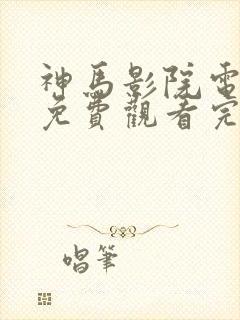 神馬影院電
免費觀看完
唱筆